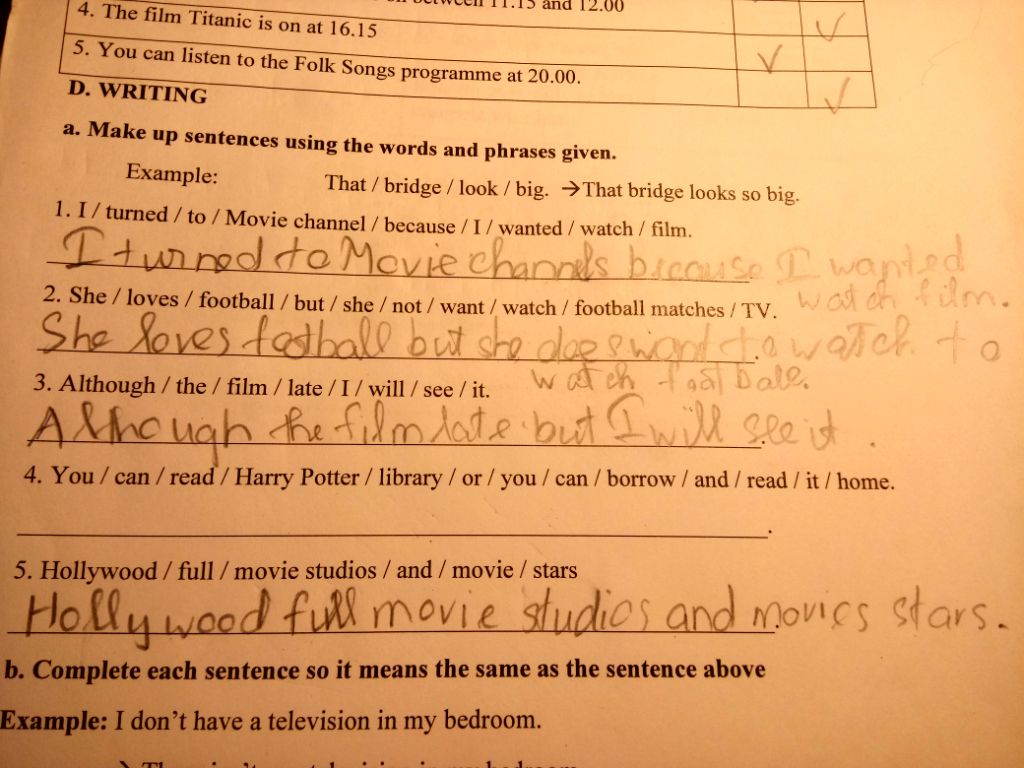 between 11.15 and 12.00
4. The film Titanic is on at 16.15
5. You can listen to the Folk Songs programme at 20.00.
D. WRITING
a. Make up sentences using the words and phrases given.
Example: That / bridge / look / big. →That bridge looks so big.
1. I / turned / to / Movie channel / because / I / wanted / watch / film.
I turned to Movie channels because I wanted
watch film.
2. She / loves / football / but / she / not / want / watch / football matches / TV.
She loves football but she does want to watch to
watch football.
3. Although / the / film / late / I / will / see / it.
Although the film late but I will see it.
4. You / can / read / Harry Potter / library / or / you / can / borrow / and / read / it / home.
5. Hollywood / full / movie studios / and / movie / stars
Hollywood full movie studios and movies stars.
b. Complete each sentence so it means the same as the sentence above
Example: I don't have a television in my bedroom.